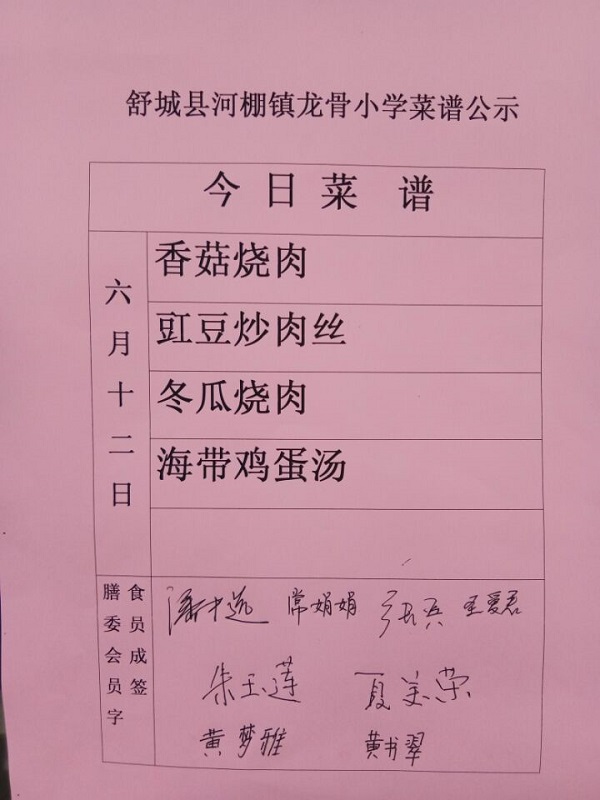 舒城县河棚镇龙骨小学菜谱公示
今日菜 谱
六月十二日
香菇烧肉
豇豆炒肉丝
冬瓜烧肉
海带鸡蛋汤
膳食委员会成员签字
常娟娟 王爱君
朱玉莲 夏美荣
黄梦雅 黄书翠